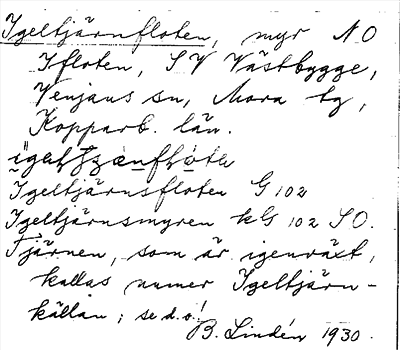 Igeltjärnfloten, myr NO
Ifloten, SV Västbygge,
Venjans sn, Mora tg,
Kopparb. län.
Igeltjärnsfloten G 102
Igeltjärnsmyren kG 102 SO.
Tjärnen, som är igenväxt,
kallas numer Igeltjärn-
källan; se d.o!
B. Lindén 1930.